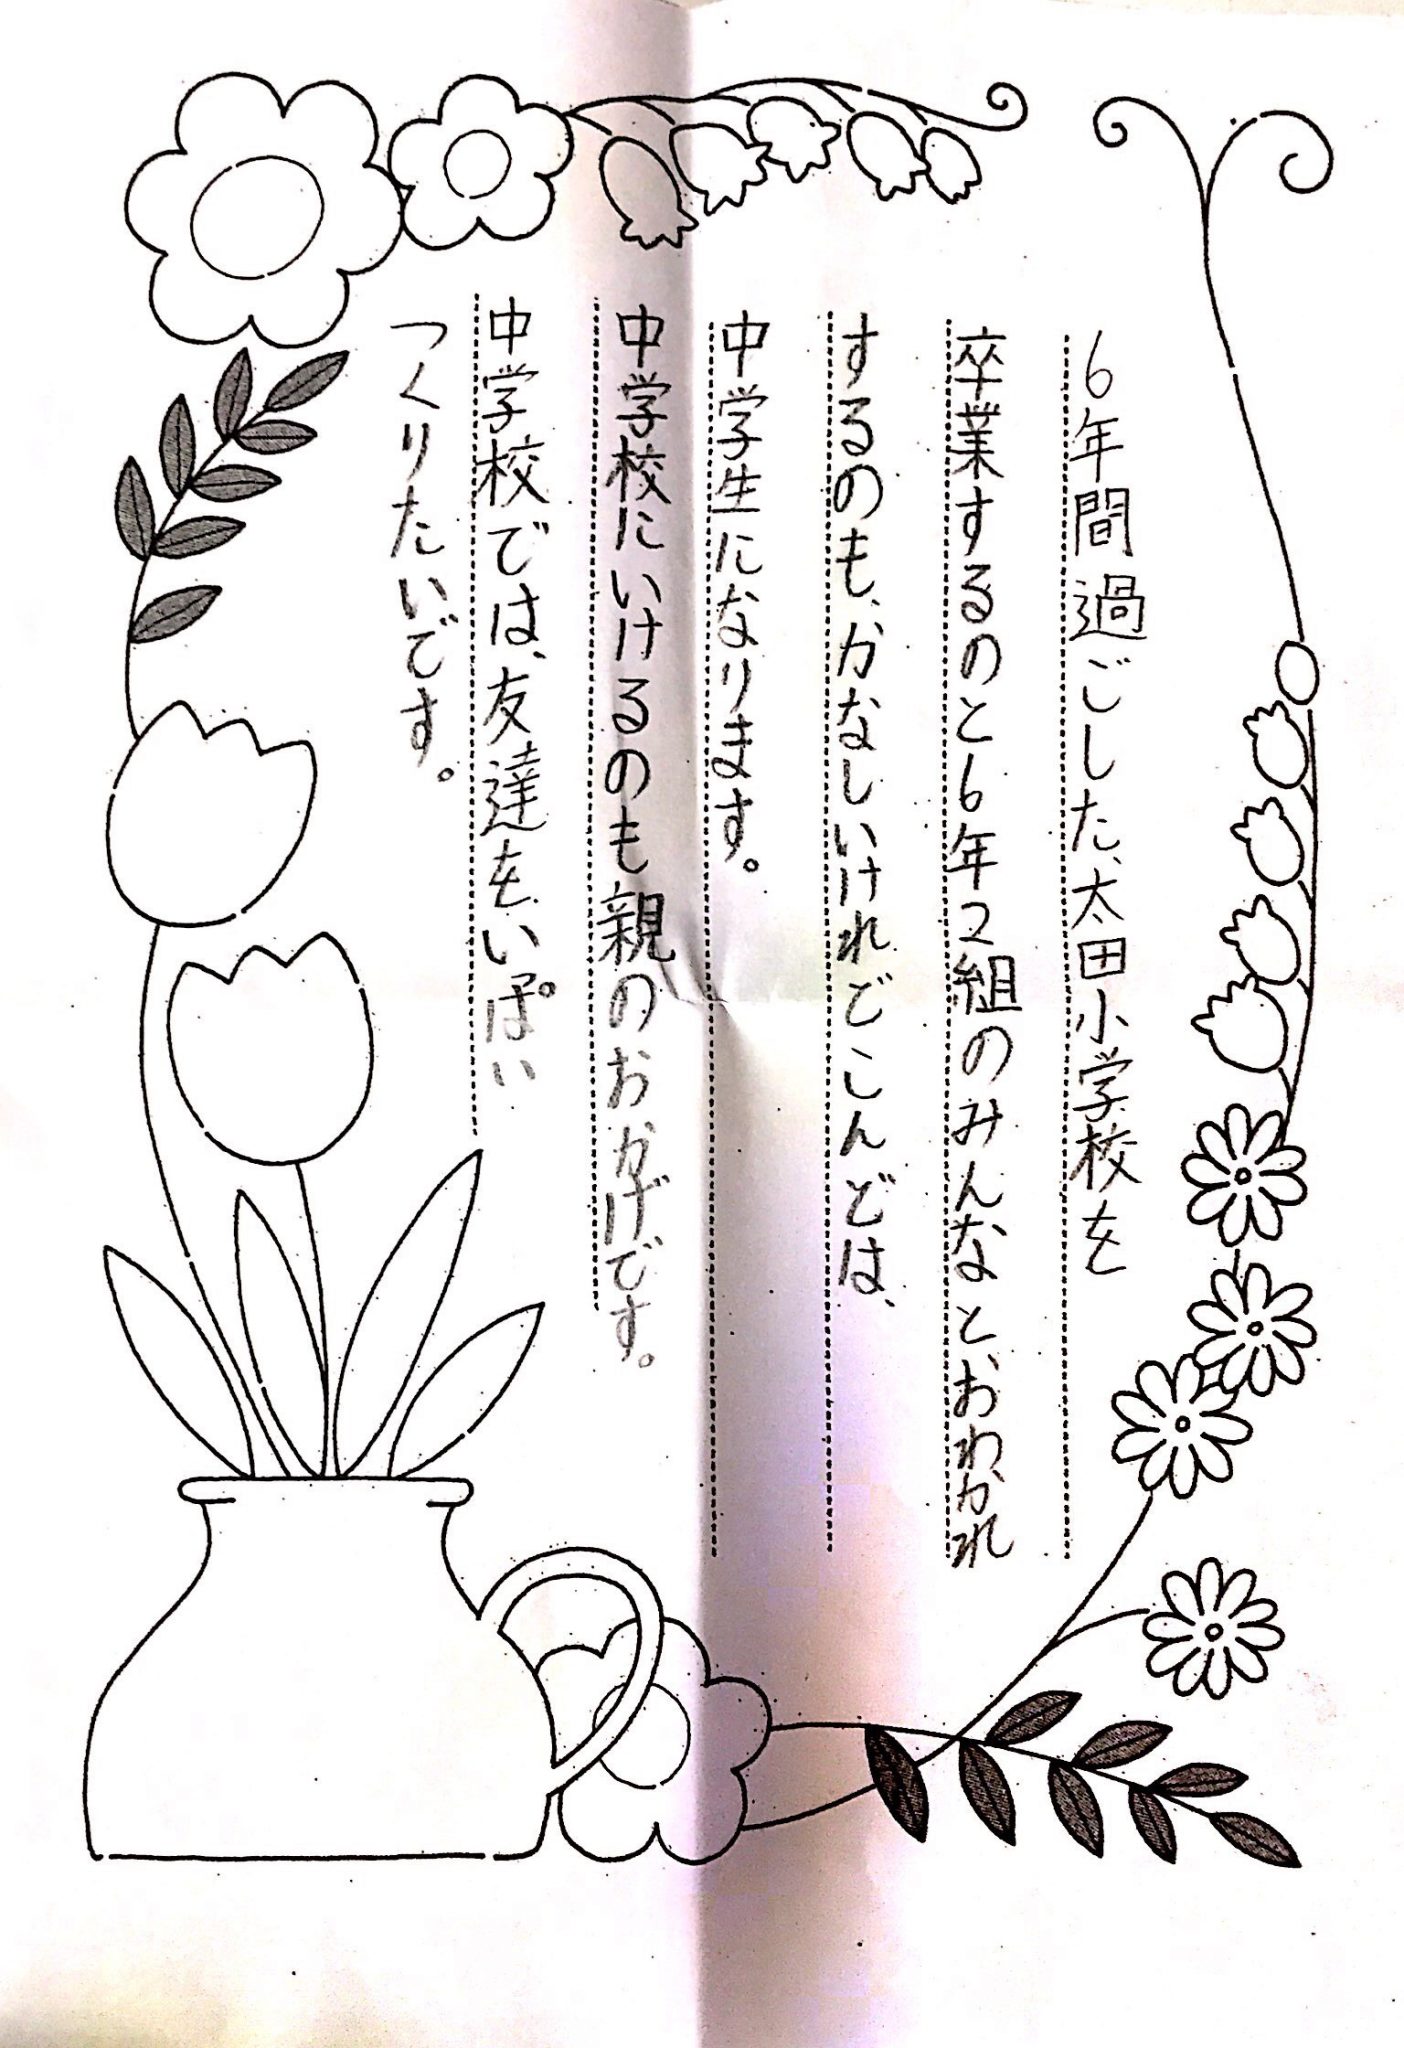 6年間過ごした、太田小学校を
卒業するのと6年2組のみんなと、おわかれ
するのも、かなしいけれどこんどは、
中学生になります。
中学校にいけるのも親のおかげです。
中学校では、友達をいっぱい
つくりたいです。